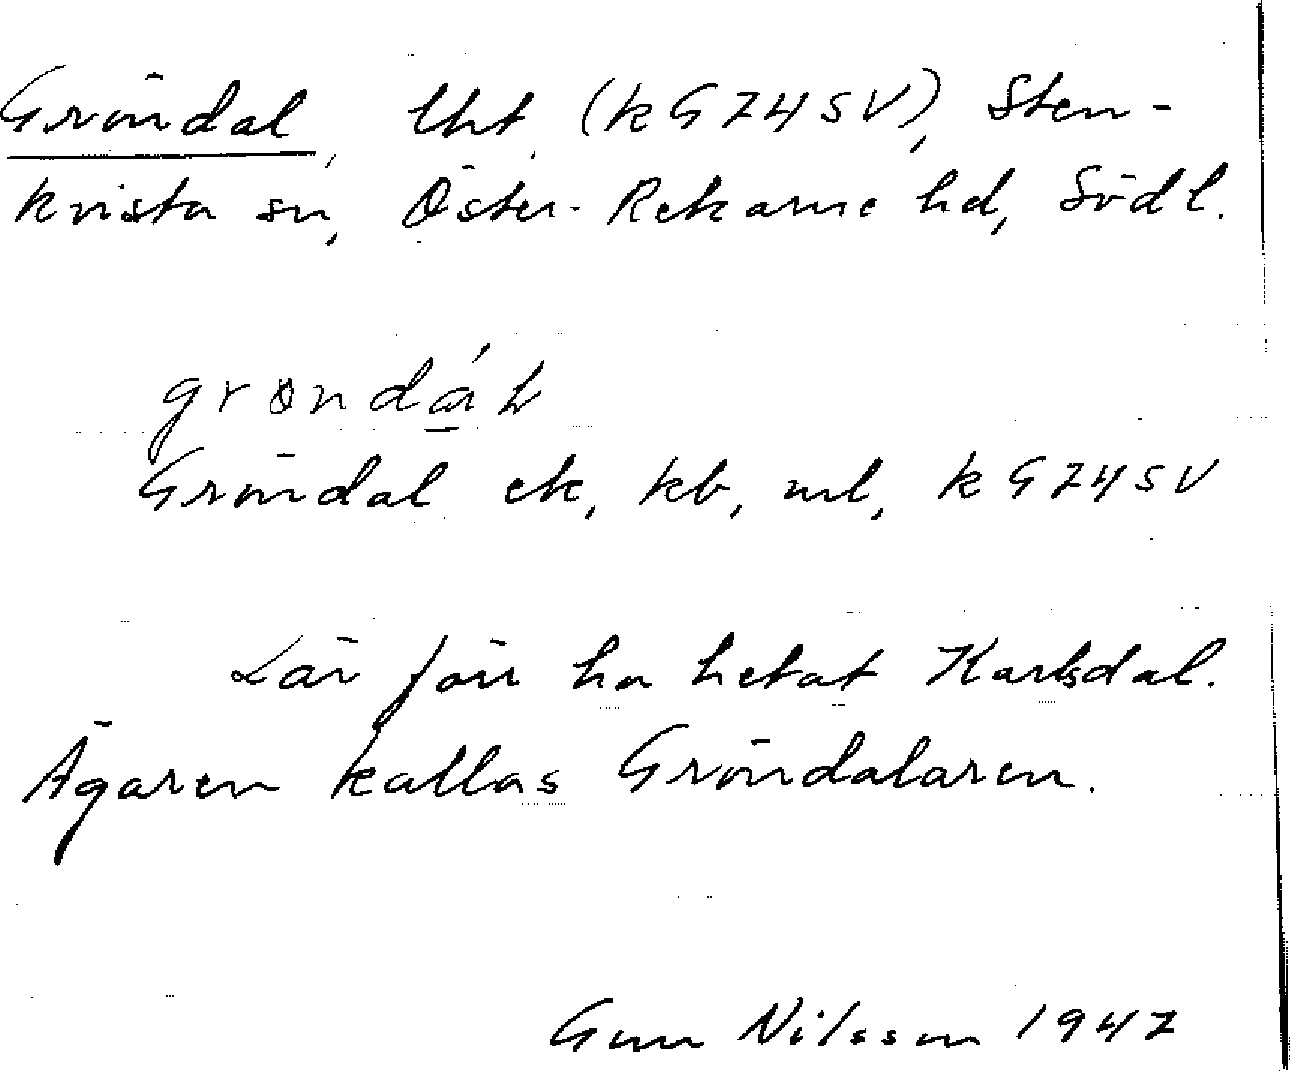 Gröndal, lht (k G74SV), Sten-
kvista sn, Öster-Rekarne hd, Södl.
grøndáL
Gröndal ek, kb, ml, k G74SV
Lär förr ha hetat Karlsdal.
Ägaren kallas Gröndalaren.
Gun Nilsson 1947